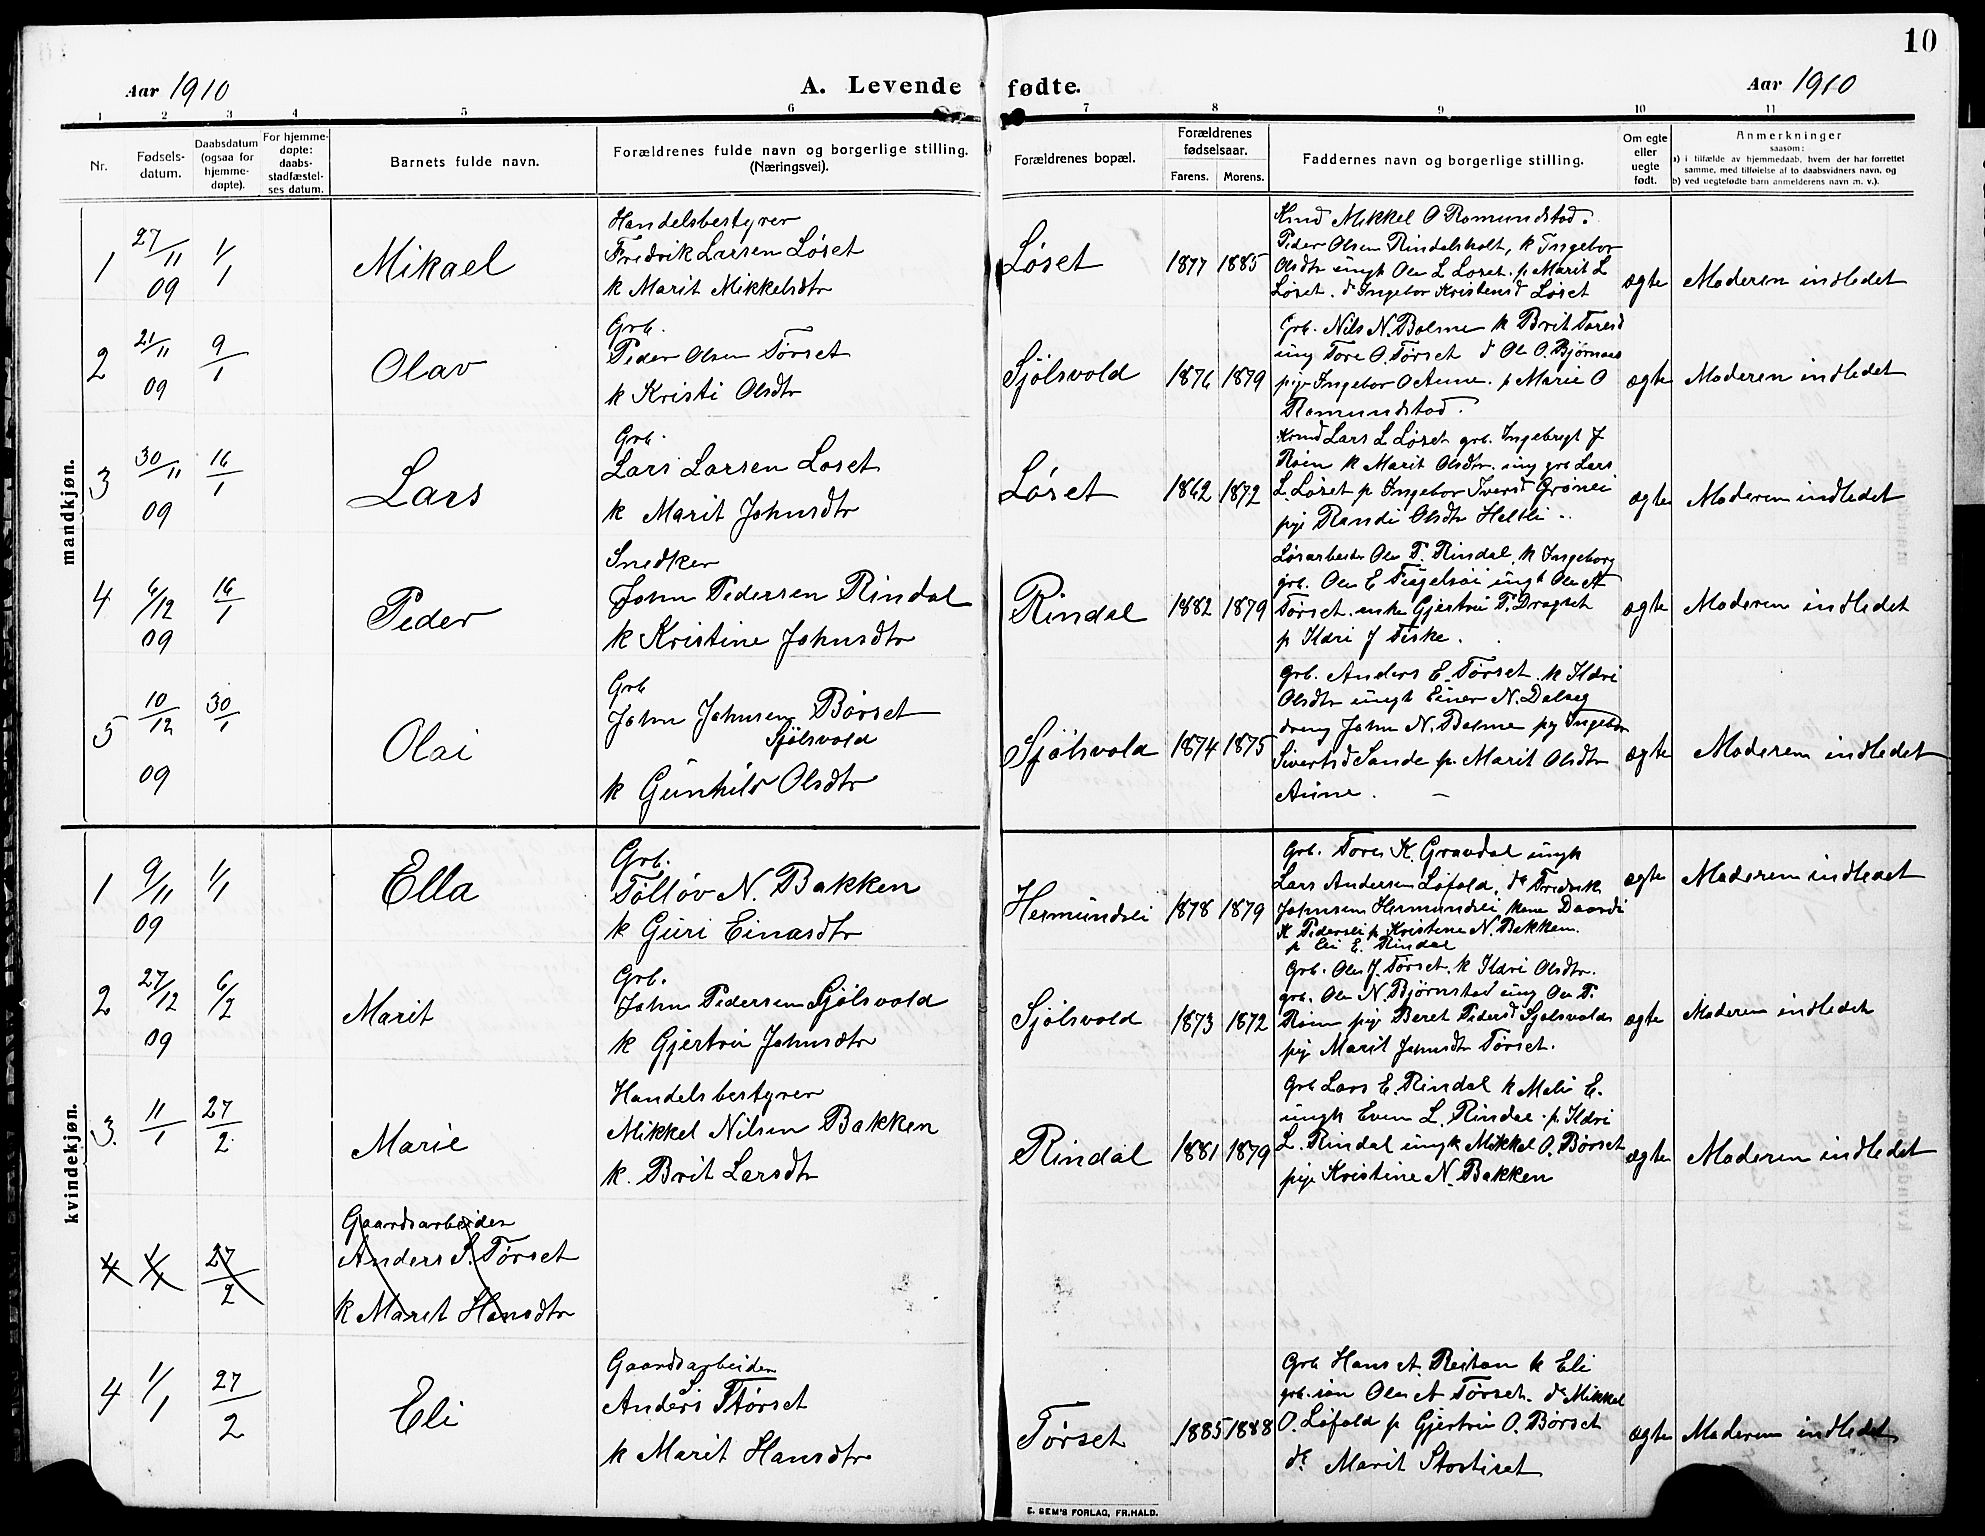 10
Aar 1910
A. Levende fødte.
Aar 1910
1 2 3 4 5 6 7 8 9 10 11
Nr.
Fødsels-
datum.
Daabsdatum
(ogsaa for
hjemme-
døpte).
For hjemme-
døpte:
daabs-
stadfæstel-
ses datum.
Barnets fulde navn.
Forældrenes fulde navn og borgerlige stilling.
(Næringsvei).
Forældrenes bopæl.
Forældrenes
fødselsaar.
Farens. Morens.
Faddernes navn og borgerlige stilling.
Om egte
eller
uegte
født.
Anmerkninger
saasom:
a) i tilfælde av hjemmedaab, hvem der har forrettet
samme, med tilføielse af to daabsvidners navn, og
b) ved uegtefødte barn anmelderens navn m. v.).
mandkjøn.
1
27/11
09
1/1
Mikael
Handelsbestyrer
Fredrik Larsen Løset
k Marit Mikkelsdtr
Løset
1877 1885
Mikkel O Romundstad.
Peder Olsen Rindalsholt, k Ingebor
Olsdtr ungk Ole L Løset. p Marit L
Løset. d Ingebor Kristensd Løset
ægte
Moderen indledet
2
21/11
09
9/1
Olav
Grb.
Peder Olsen Tørset
k Kristi Olsdtr
Sjølsvold
1876 1879
Grb. Nils N. Bolme k Brit Toresd
ung Tore O. Tørset d Ole O. Bjørnaas
pige Ingebor O Aune. p Marie O
Romundstad.
ægte
Moderen indledet
3
30/11
09
16/1
Lars
Grb.
Lars Larsen Løset
k Marit Johnsdtr
Løset
1862 1872
Lars L Løset grb. Ingebrigt J
Røen k Marit Olsdtr. ung grb Lars
L Løset p Ingebor Iversd Grønli
pige Randi Olsdtr Heltli
ægte
Moderen indledet
4
6/12
09
16/1
Peder
Snedker
John Pedersen Rindal
k Kristine Johnsdtr
Rindal
1882 1879
Løsarbeider Ole P. Rindal, k Ingeborg
grb. Ole E ungk Ole A
Tørset. enke Gjertrue P. Dragset
p Ildri J Fiske.
ægte
Moderen indledet
5
10/12
09
30/1
Olai
Grb
John Johnsen Børset
Sjølsvold
k Gunhild Olsdtr
Sjølsvold
1874 1875
grb. Anders E. Tørset. k Ildri
Olsdtr ungk Einer N. Dalseg
dreng John N. Bolme pg Ingebor
Sivertsd Sande p. Marit Olsdtr
Aune.
ægte
Moderen indledet
kvindekjøn.
1
9/11
09
1/1
Ella
Grb.
Tølløv N. Bakken
k Guri Einarsdtr
Hermundsli
1878 1879
Grb. Tore K. Gravdal ungk
Lars Andersen Løfald, do Fredrik
Johnsen Hermundsli kone
K Pedersli p Kristine N. Bakken.
p E. Rindal
ægte
Moderen indledet
2
27/12
09
6/2
Marit
Grb.
John Pedersen Sjølsvold
k Gjertru Johnsdtr
Sjølsvold
1873 1872
Grb. Ole J. Tørset. k Ildri Olsdtr.
grb. Ole N. Bjørnstad ung Ole P.
Røen pige Beret Pedersd Sjølsvold
pige Marit Johnsdtr Tørset.
ægte
Moderen indledet
3.
11/1
27/2
Marie
Handelsbestyrer
Mikkel Nilsen Bakken
k. Brit Larsdtr
Rindal
1881 1879
Grb Lars E. Rindal k Mali E.
ungk Even L. Rindal. p Ildri
L. Rindal ungk Mikkel O. Børset
pige Kristine N. Bakken
ægte
Moderen indledet
4
1/1
27/2
Gaardsarbeider
Anders S. Tørset
k Marit Hansdtr
4
1/1
27/2
Eli
Gaardsarbeider
Anders S Tørset
k Marit Hansdtr
Tørset
1885 1888
Grb Hans A. Reitan k Eli
grb. søn Ole A Tørset. do Mikkel
O. Løfald p Gjertrue O. Børset
do Marit Stortiset
ægte
Moderen indledet
E. SEM'S FORLAG, FR.HALD.